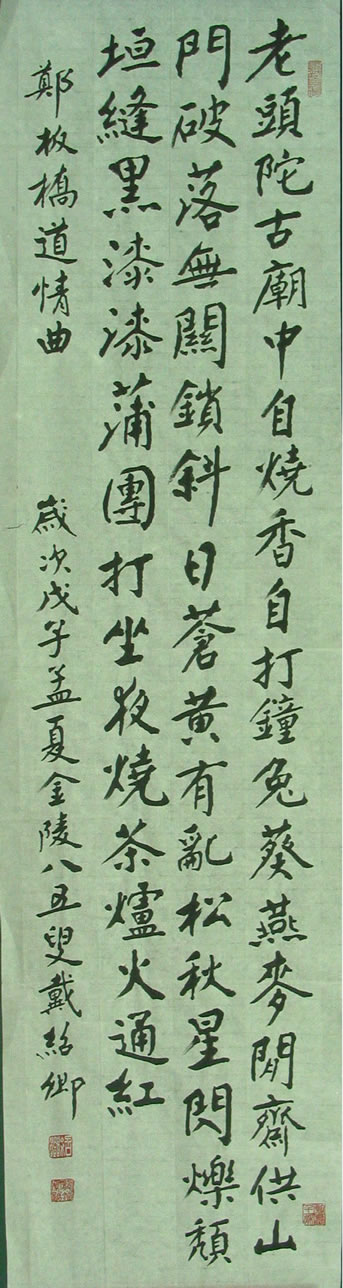 老頭陀古廟中自燒香自打鐘兔葵燕麥閒齋供山
門破落無關鎖斜日蒼黃有亂松秋星閃爍頹
垣縫黑漆漆蒲團打坐夜燒茶爐火通紅
鄭板橋道情曲
歲次戊子孟夏金陵八五叟戴紹卿